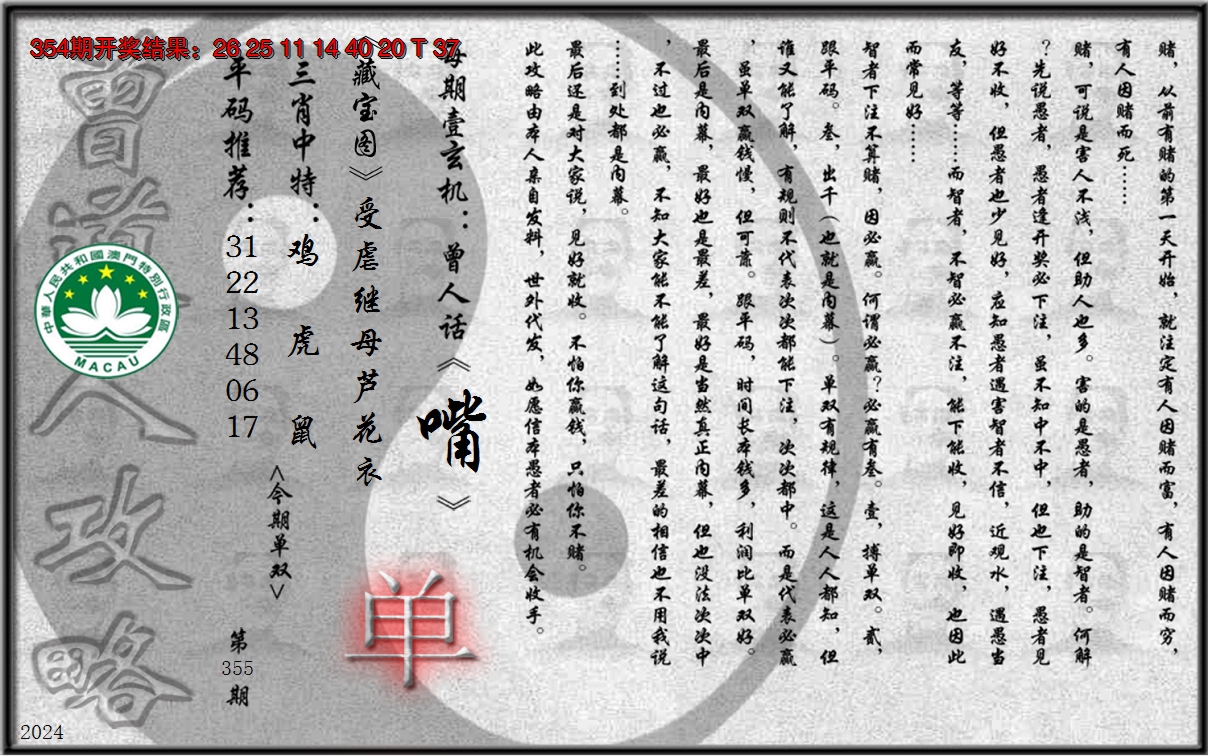 354期开奖结果：26 25 11 14 40 20 T 37
赌，从前有赌的第一天开始，就注定有人因赌而富，有人因赌而穷，
有人因赌而死……
赌，可说是害人不浅，但助人也多。害的是愚者，助的是智者。何解
？先说愚者，愚者逢开奖必下注，虽不知中不中，但也下注，愚者见
好不收，但愚者也少见好，应知愚者遇害智者不信，近观水，遇愚当
友，等等……而智者，不智必赢不注，能下能收，见好即收，也因此
而常见好……
智者下注不算赌，因必赢。何谓必赢？必赢有叁。壹，搏单双。贰，
跟平码。叁，出千（也就是内幕）。单双有规律，这是人人都知，但
谁又能了解，有规则不代表次次都能下注，次次都中。而是代表必赢
，虽单双赢钱慢，但可靠。跟平码，时间长本钱多，利润比单双好。
最后是内幕，最好也是最差，最好是当然真正内幕，但也没法次次中
，不过也必赢，不知大家能不能了解这句话，最差的相信也不用我说
……到处都是内幕。
最后还是对大家说，见好就收。不怕你赢钱，只怕你不赌。
此攻略由本人亲自发料，世外代发，如愿信本愚者必有机会收手。
每期壹玄机：曾人话《嘴》
《藏宝图》受虐继母芦花衣
单
三肖中特：鸡 虎 鼠
<今期单双>
平码推荐：31 22 13 48 06 17
第355期
曾道人攻略
中華人民共和國澳門特別行政區
MACAU
2024